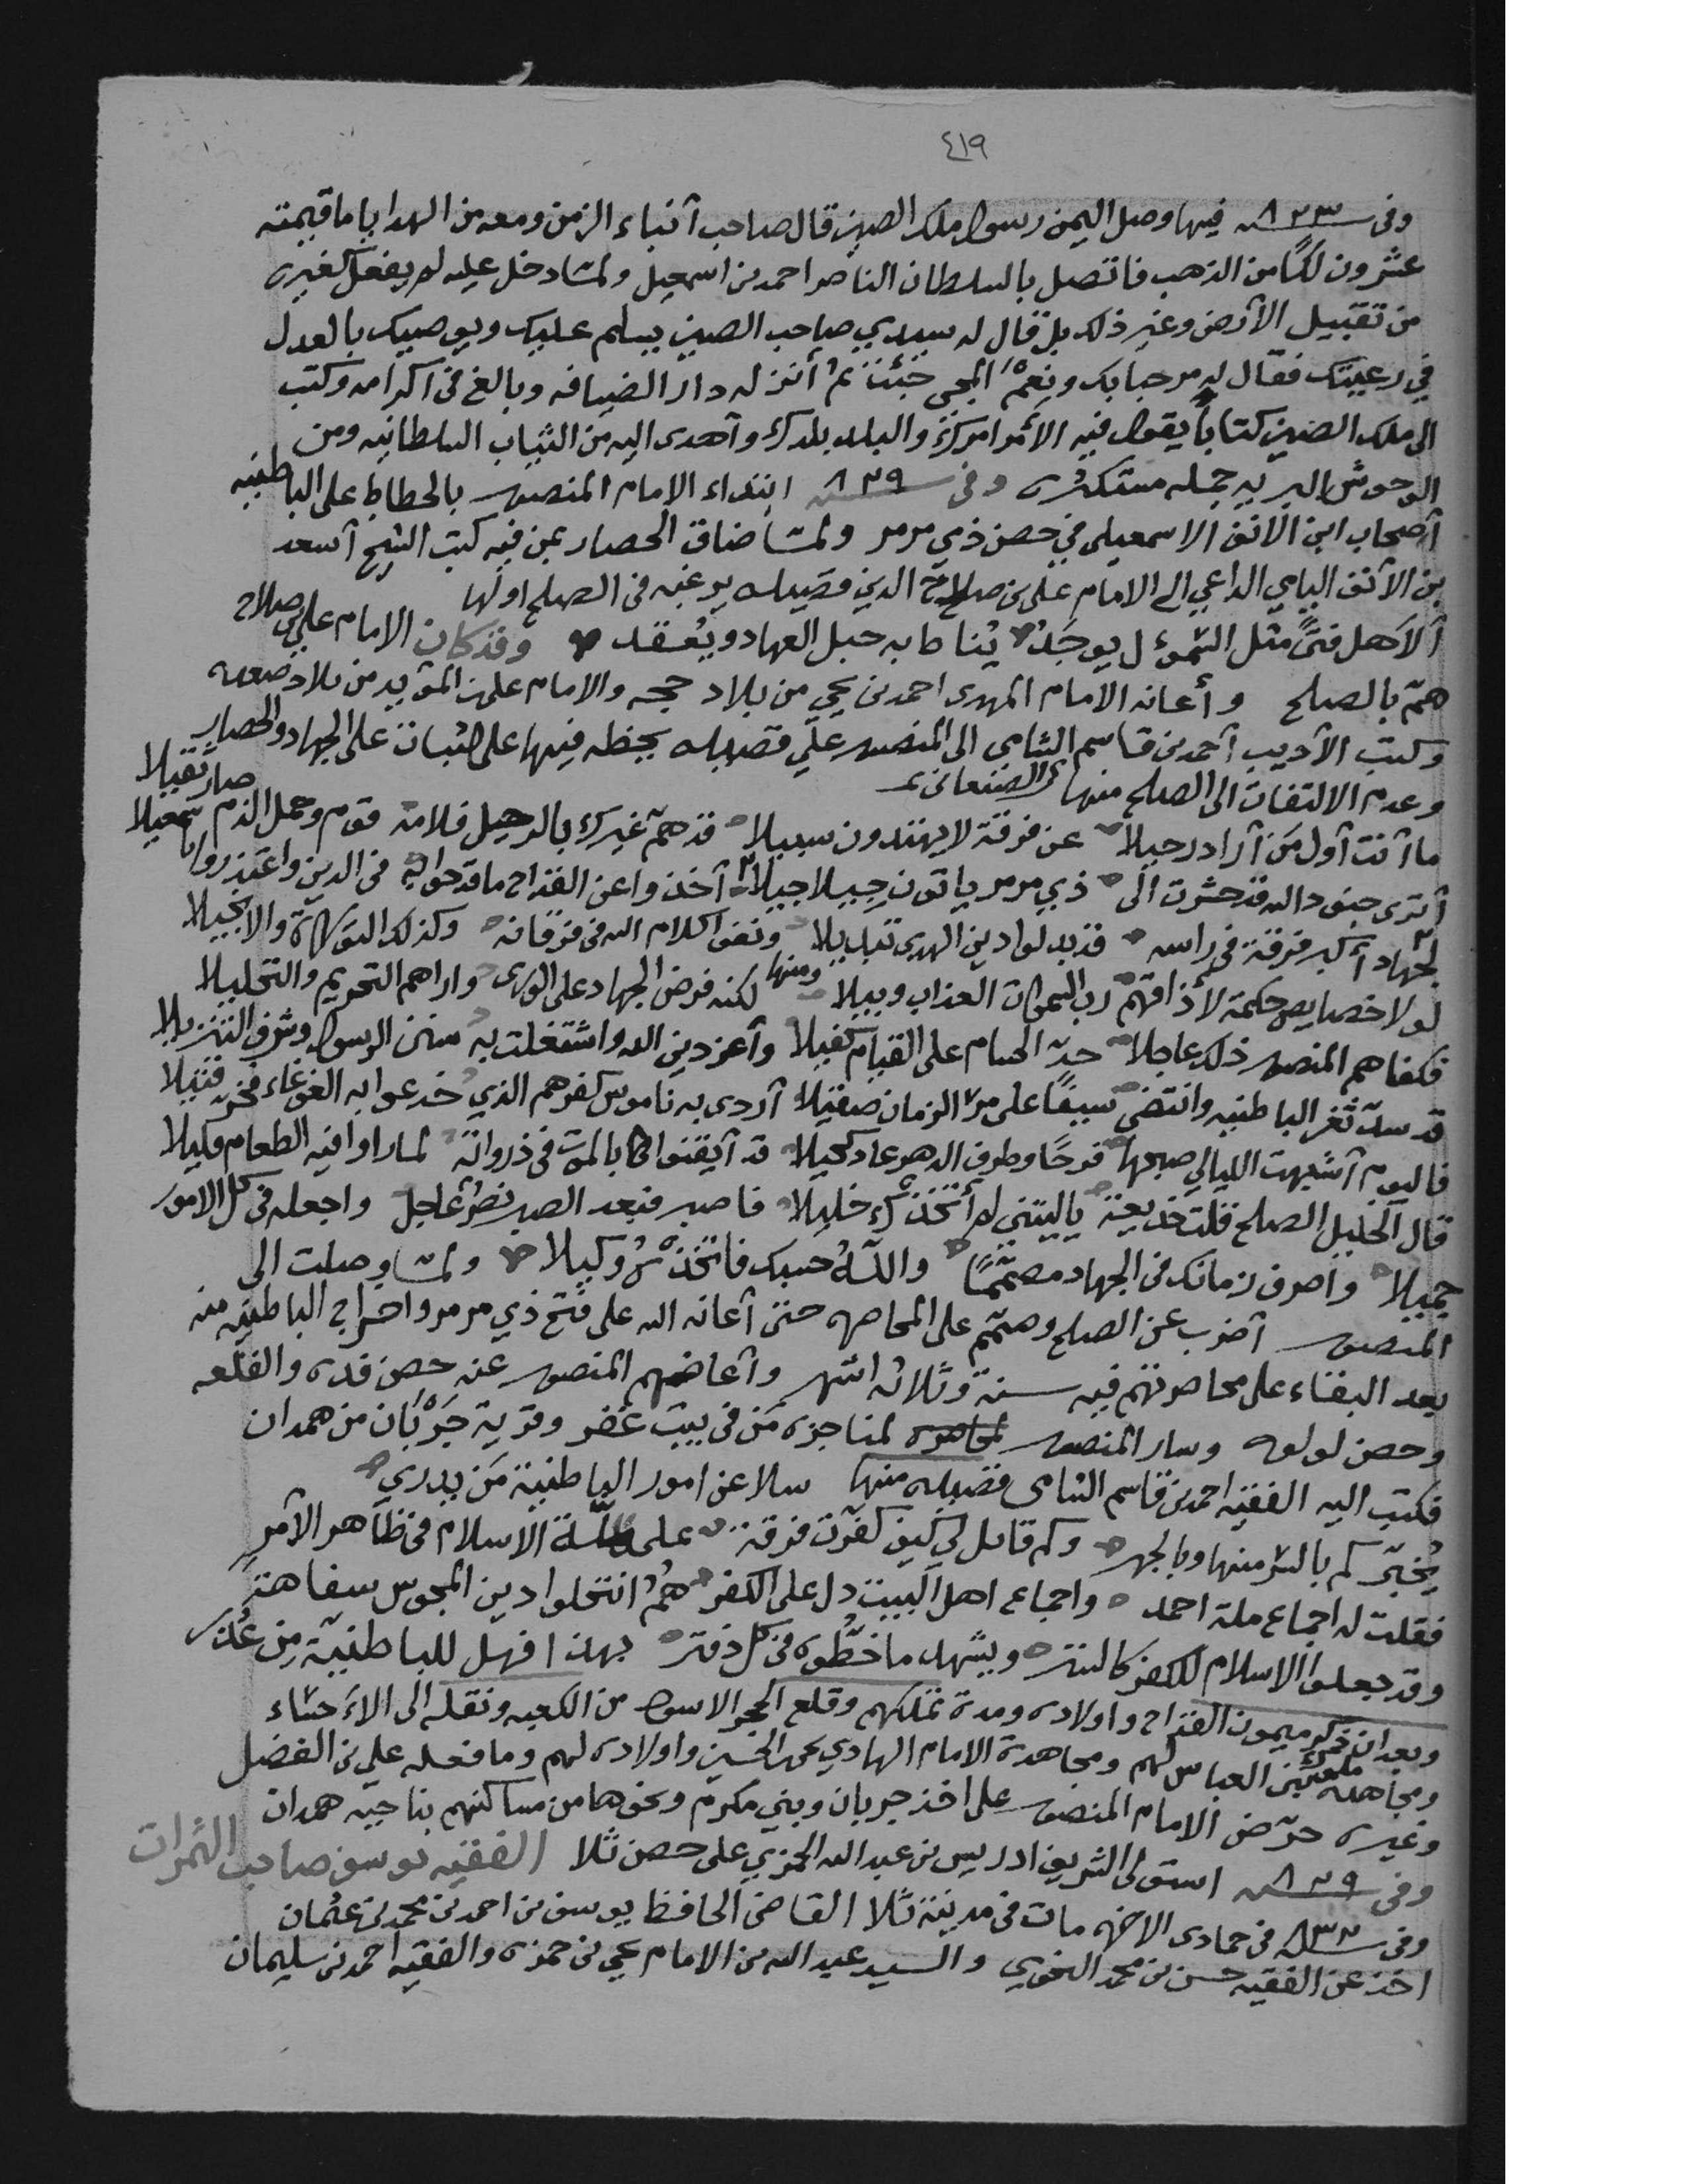 ٤١٩
وفي سنة ٨٢٣ فيها وصل اليمن رسول ملك الصين قال صاحب أنباء الزمن ومعه من الهدايا ما قيمته
عشرون لكًا من الذهب فاتصل بالسلطان الناصر احمد بن اسمعيل ولما دخل عليه لم يفعل كغيره
من تقبيل الأرض وغير ذلك بل قال له سيدي صاحب الصين يسلم عليك ويوصيك بالعدل
في رعيتك فقال له مرحبا بك ونِعمَ المجي جئت ثم أنزله دار الضيافه وبالغ في اكرامه وكتب
الى ملك الصين كتابا يقول فيه الأمر امرك والبلد بلدك وأهدى اليه من الثياب السلطانيه ومن
الوحوش البريه جمله مستكثره وفي سنة ٨٢٩ ابتداء الإمام المنصور بالحطاط على الباطنيه
أصحاب ابن الانف الاسمعيلي في حصن ذي مرمر ولما ضاق الحصار بمن فيه كتب الشيخ أسعد
بن الأنف اليامي الداعي الى الامام علي بن صلاح الدين قصيده يرغبه في الصلح اولها
ألا هل فتىً مثل السموءل يوجَدُ يُناط به حبل العهاد ويُعقد وقد كان الامام علي بن صلاح
همّ بالصلح وأعانه الامام المهدى احمد بن يحيى من بلاد حجه والامام علي بن المؤيد من بلاد صعده
وكتب الأديب أحمد بن قاسم الشامي الى المنصور علي قصيده يحظه فيها على الثبات على الجهاد والحصار
وعدم الالتفات الى الصلح منها الصنعاني
ما أنت أول مَن أراد رحيلا عن فرقة لا يهتدون سبيلا قد همّ غيرك بالرحيل فلامه قوم وحمل الذم صار ثقيلا
أترى جنود الله قد حشرت الى ذي مرمر ياتون جِيلا جيلا أخذوا عن القداح ما قدحوا به في الدين واعتذروا باسمعيلا
لجهاد أكبر فرقة في راسه قد بدلوا دين الهدى تبديلا ونفوا كلام الله في فرقانه وكذلك التوراة والانجيلا
لولا خصايص حكمة لأذاقهم رب السموات العذاب وبيلا ومنها لكنه فرض الجهاد على الورى واراهم التحريم والتحليلا
فكفاهم المنصور ذلك عاجلا حدّ الحسام على القيام كفيلا وأعز دين الله واشتغلت به سنن الرسول وشرف التنزيلا
قد سدّ ثغر الباطنيه وانتضى سيفًا على مرّ الزمان صقيلا أردى به ناموس كفرهم الذي خدعوا به الغوغاء فخرّ قتيلا
فاليوم أشبهت الليالي صبحها فرحًا وطرف الدهر عاد كحيلا قد أيقنوا بالموت في ذرواته لما راوا فيه الطعام مكيلا
قال الخليل الصلح قلت خديعة ياليتني لم أتخذك خليلا فاصبر فبعد الصبر نصرٌ عاجل واجعله في كل الامور
جميلا واصرف زمانك في الجهاد مصممًا واللّهُ حسبك فاتخذه وكيلا ولما وصلت الى
المنصور أضرب عن الصلح وصمّم على المحاصره حتى أعانه الله على فتح ذي مرمر واخراج الباطنيه منه
بعد البقاء على محاصرتهم فيه سنة وثلاثه اشهر وأعاضهم المنصور عنه حصن فده والقلعه
وحصن لولوه وسار المنصور لمناجزه مَن في بيت غفر وقرية جَرْبَان من همدان
فكتب اليه الفقيه احمد بن قاسم الشامي قصيده منها سلا عن امور الباطنيّة مَن يدري
يُخبّركم بالسر منها وبالجهر وكم قائل لي كيف كفّرت فرقة على ملّة الاسلام في ظاهر الأمر
فقلت له اجماع ملة احمد واجماع اهل البيت دل على الكفر همُ انتحلوا دين المجوس سفاهةً
وقد جعلوا الاسلام للكفر كالستر ويشهد ما خطّوه في كل دفتر بهذا فهل للباطنيّة مِن عُذر
وبعد ان ذكر ميمون القداح واولاده ومدة تملكهم وقلع الحجر الاسود من الكعبه ونقله الى الاحساء
ومجاهدة بني العباس لهم ومجاهدة الامام الهادي يحيى بن الحسين واولاده لهم وما فعله علي بن الفضل
وغيره حرّض الامام المنصور على اخذ جربان وبني مكرم ونحوها من مساكنهم بناحيه همدان
وفي سنة ٨٢٩ استولى الشريف ادريس بن عبد الله الحمزي على حصن ثلا الفقيه يوسف صاحب الثمرات
وفي سنة ٨٣٢ في جمادى الاخره مات في مدينة ثلا القاضي الحافظ يوسف بن احمد بن محمد بن عثمان
اخذ عن الفقيه حسن بن محمد النحوي والسيد عبد الله بن الامام يحيى بن حمزه والفقيه احمد بن سليمان